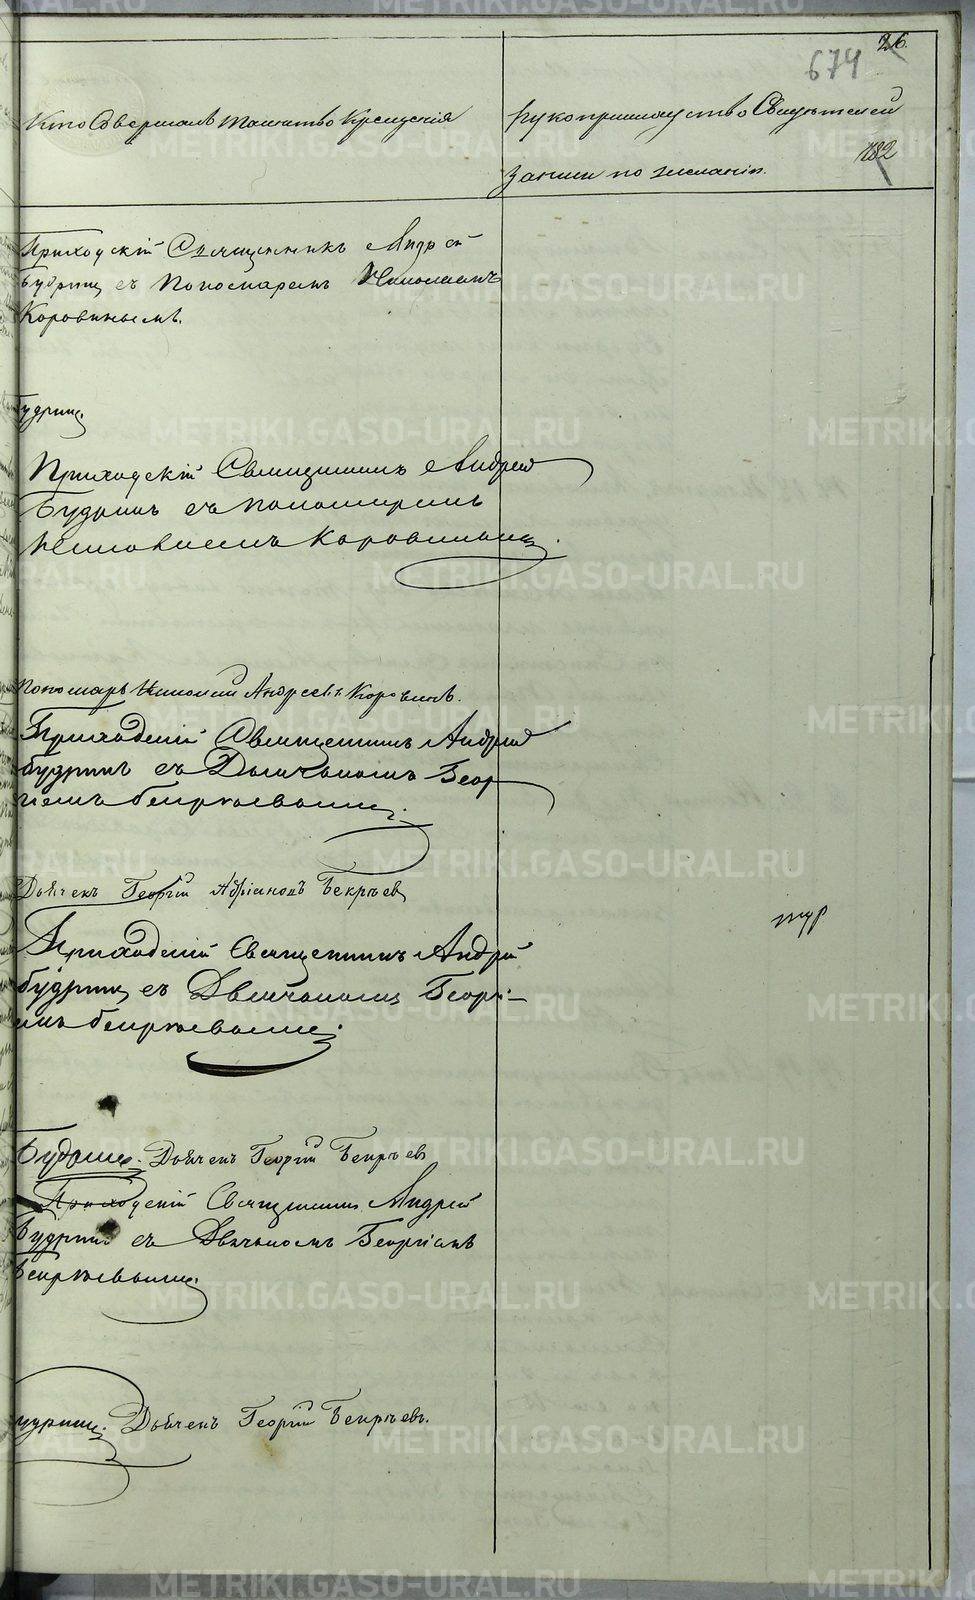 26.
674
Кто Совершалъ Таинство Крещенія
Рукоприкладство Свидѣтелей
182
записи по желанію.
Приходскій Священникъ Андрей
Будринъ съ Пономаремъ Николаемъ
Коровинымъ.
Будринъ.
Приходскій Священникъ Андрей
Будринъ съ пономаремъ
Николаемъ Коровинымъ.
Пономарь Николай Андреевъ Коровинъ.
Приходскій Священникъ Андрей
Будринъ съ Дьячкомъ Геор
гіемъ Бекряевымъ.
Дьячекъ Георгій Адріановъ Бекряевъ
Приходскій Священникъ Андрей
Будринъ съ Дьячкомъ Георгі-
емъ Бекряевымъ.
Будринъ. Дьячекъ Георгій Бекряевъ
Приходскій Священникъ Андрей
Будринъ съ Дьячкомъ Георгіемъ
Бекряевымъ.
Будринъ. Дьячекъ Георгій Бекряевъ.
METRIKI.GASO-URAL.RU